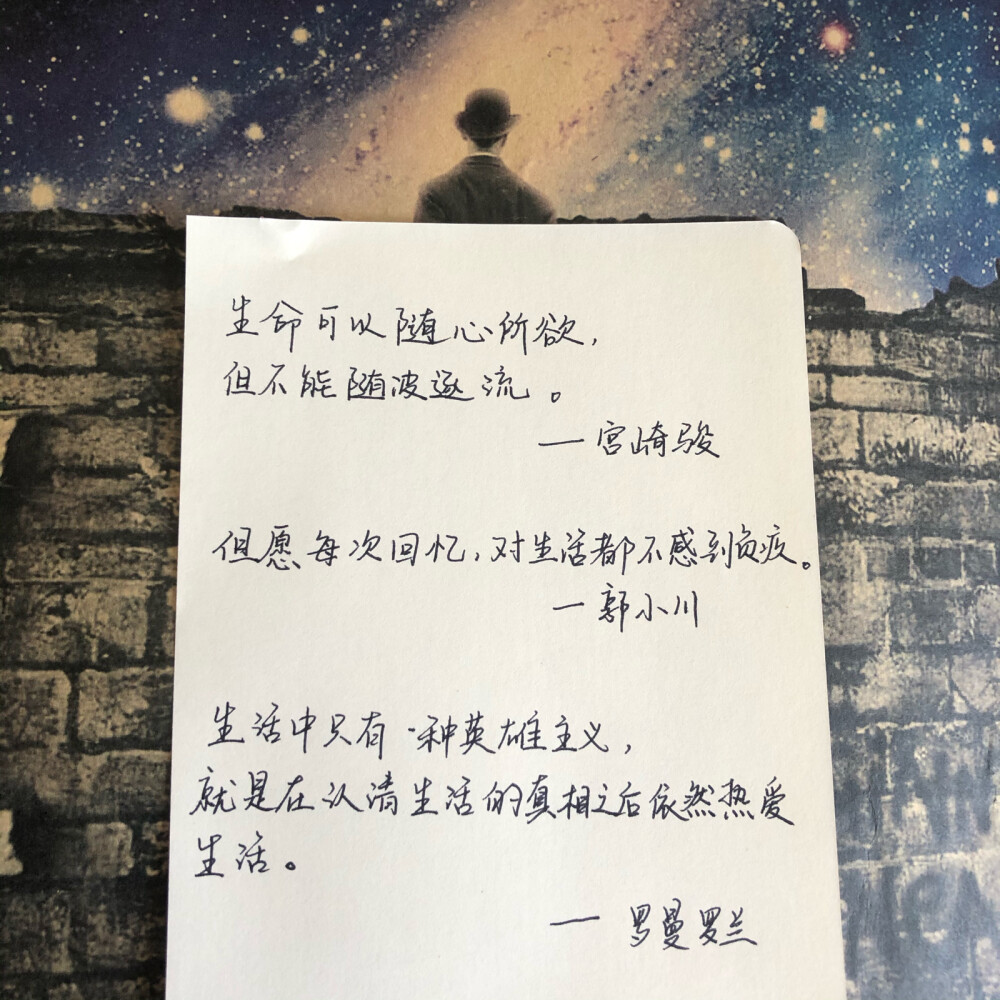 生命可以随心所欲,
但不能随波逐流。
— 宫崎骏
但愿每次回忆,对生活都不感到负疚。
— 郭小川
生活中只有一种英雄主义,
就是在认清生活的真相之后依然热爱
生活。
— 罗曼罗兰